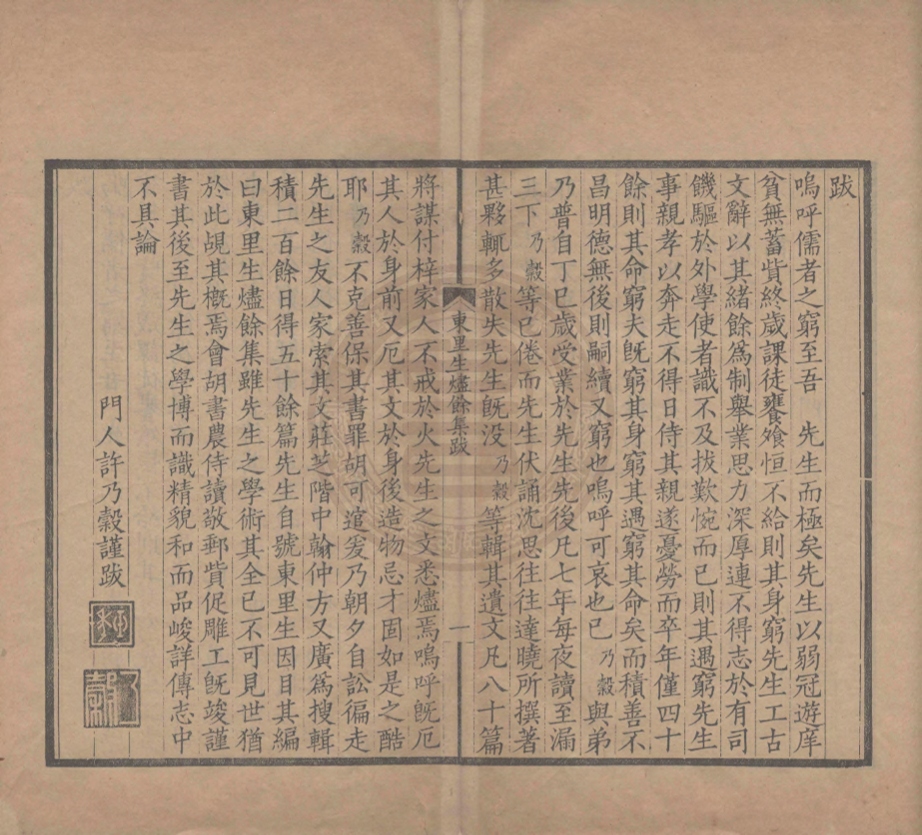 跋
嗚呼儒者之窮至吾　先生而極矣先生以弱冠遊庠
貧無蓄貲終歲課徒饔飧恒不給則其身窮先生工古
文辭以其緒餘爲制舉業思力深厚連不得志於有司
饑驅於外學使者識不及拔歎惋而已則其遇窮先生
事親孝以奔走不得日侍其親遂憂勞而卒年僅四十
餘則其命窮夫旣窮其身窮其遇窮其命矣而積善不
昌明德無後則嗣續又窮也嗚呼可哀也已乃穀與弟
乃普自丁巳歲受業於先生先後凡七年每夜讀至漏
三下乃穀等已倦而先生伏誦沈思往往達曉所撰著
甚夥輒多散失先生旣没乃穀等輯其遺文凡八十篇
東里生燼餘集跋
一
將謀付梓家人不戒於火先生之文悉燼焉嗚呼旣厄
其人於身前又厄其文於身後造物忌才固如是之酷
耶乃穀不克善保其書罪胡可逭爰乃朝夕自訟徧走
先生之友人家索其文莊芝階中翰仲方又廣爲搜輯
積二百餘日得五十餘篇先生自號東里生因目其編
曰東里生燼餘集雖先生之學術其全已不可見世猶
於此覘其槪焉會胡書農侍讀敬郵貲促雕工旣竣謹
書其後至先生之學博而識精貌和而品峻詳傳志中
不具論
門人許乃穀謹跋